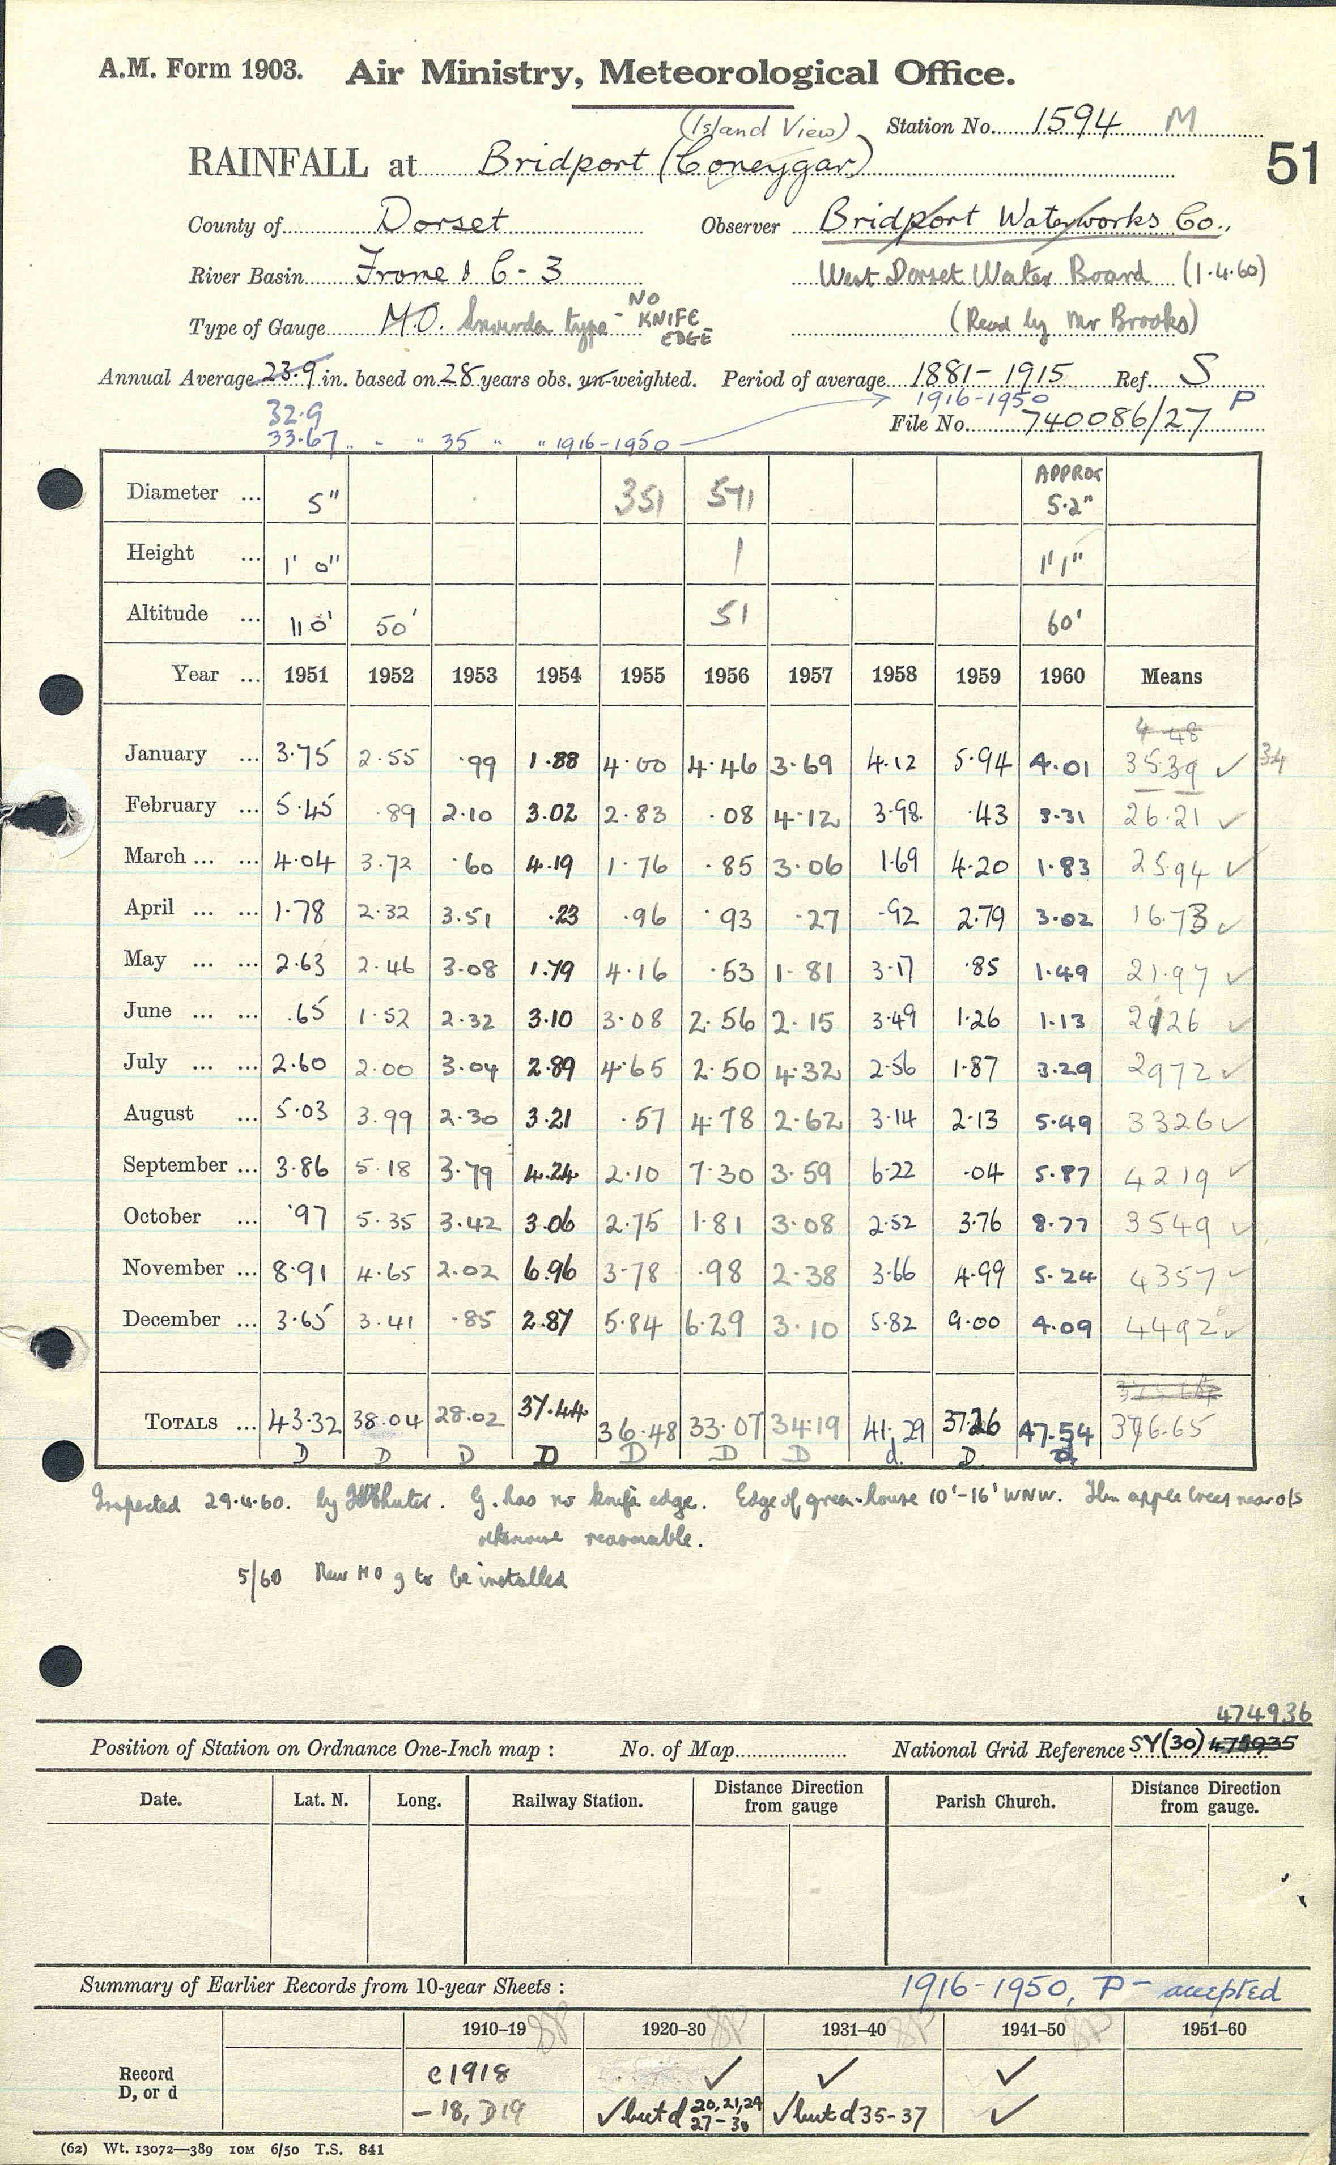 A.M. Form 1903. Air Ministry, Meteorological Office.
(Island View) Station No. 1594 M
RAINFALL at Bridport (Coneygar) 51
County of Dorset Observer Bridport Waterworks Co.,
River Basin Frome & C-3 West Dorset Water Board (1.4.60)
Type of Gauge M.O. Snowdon type - NO KNIFE EDGE (Read by Mr Brooks)
Annual Average 23.9 in. based on 28 years obs. un-weighted. Period of average 1881-1915 Ref. S
32.9 1916-1950 P
33.67 " " " 35 " " 1916-1950 File No. 740086/27
Diameter ... 5" 351 571 APPROX 5.2"
Height ... 1' 0" 1 1' 1"
Altitude ... 110' 50' 51 60'
Year ... 1951 1952 1953 1954 1955 1956 1957 1958 1959 1960 Means
4 48
January ... 3.75 2.55 .99 1.88 4.00 4.46 3.69 4.12 5.94 4.01 35.39 ✓ 34
February ... 5.45 .89 2.10 3.02 2.83 .08 4.12 3.98 .43 3.31 26.21 ✓
March ... ... 4.04 3.72 .60 4.19 1.76 .85 3.06 1.69 4.20 1.83 25.94 ✓
April ... ... 1.78 2.32 3.51 .23 .96 .93 .27 .92 2.79 3.02 16.73 ✓
May ... ... 2.63 2.46 3.08 1.79 4.16 .53 1.81 3.17 .85 1.49 21.97 ✓
June ... ... .65 1.52 2.32 3.10 3.08 2.56 2.15 3.49 1.26 1.13 2126 ✓
July ... ... 2.60 2.00 3.04 2.89 4.65 2.50 4.32 2.56 1.87 3.29 2972 ✓
August ... 5.03 3.99 2.30 3.21 .57 4.78 2.62 3.14 2.13 5.49 3326 ✓
September ... 3.86 5.18 3.79 4.24 2.10 7.30 3.59 6.22 .04 5.87 4219 ✓
October ... .97 5.35 3.42 3.06 2.75 1.81 3.08 2.52 3.76 8.77 3549 ✓
November ... 8.91 4.65 2.02 6.96 3.78 .98 2.38 3.66 4.99 5.24 4357 ✓
December ... 3.65 3.41 .85 2.87 5.84 6.29 3.10 5.82 9.00 4.09 4492 ✓
TOTALS ... 43.32 38.04 28.02 37.44 36.48 33.07 34.19 41.29 37.26 47.54 376.65
D D D D D D D d. D. d.
Inspected 29.4.60. by G. has no knife edge. Edge of green-house 10'-16' WNW. apple trees near o/s
otherwise reasonable.
5/60 New MO g to be installed
474936
Position of Station on Ordnance One-Inch map : No. of Map National Grid Reference SY(30) 475935
Date. Lat. N. Long. Railway Station. Distance Direction from gauge Parish Church. Distance Direction from gauge.
Summary of Earlier Records from 10-year Sheets : 1916-1950, P - accepted
1910–19 1920–30 1931–40 1941–50 1951–60
Record D, or d c1918 ✓ ✓ ✓
-18, D19 ✓ but d 20,21,24 27-30 ✓ but d 35-37 ✓
(62) Wt. 13072—389 10M 6/50 T.S. 841